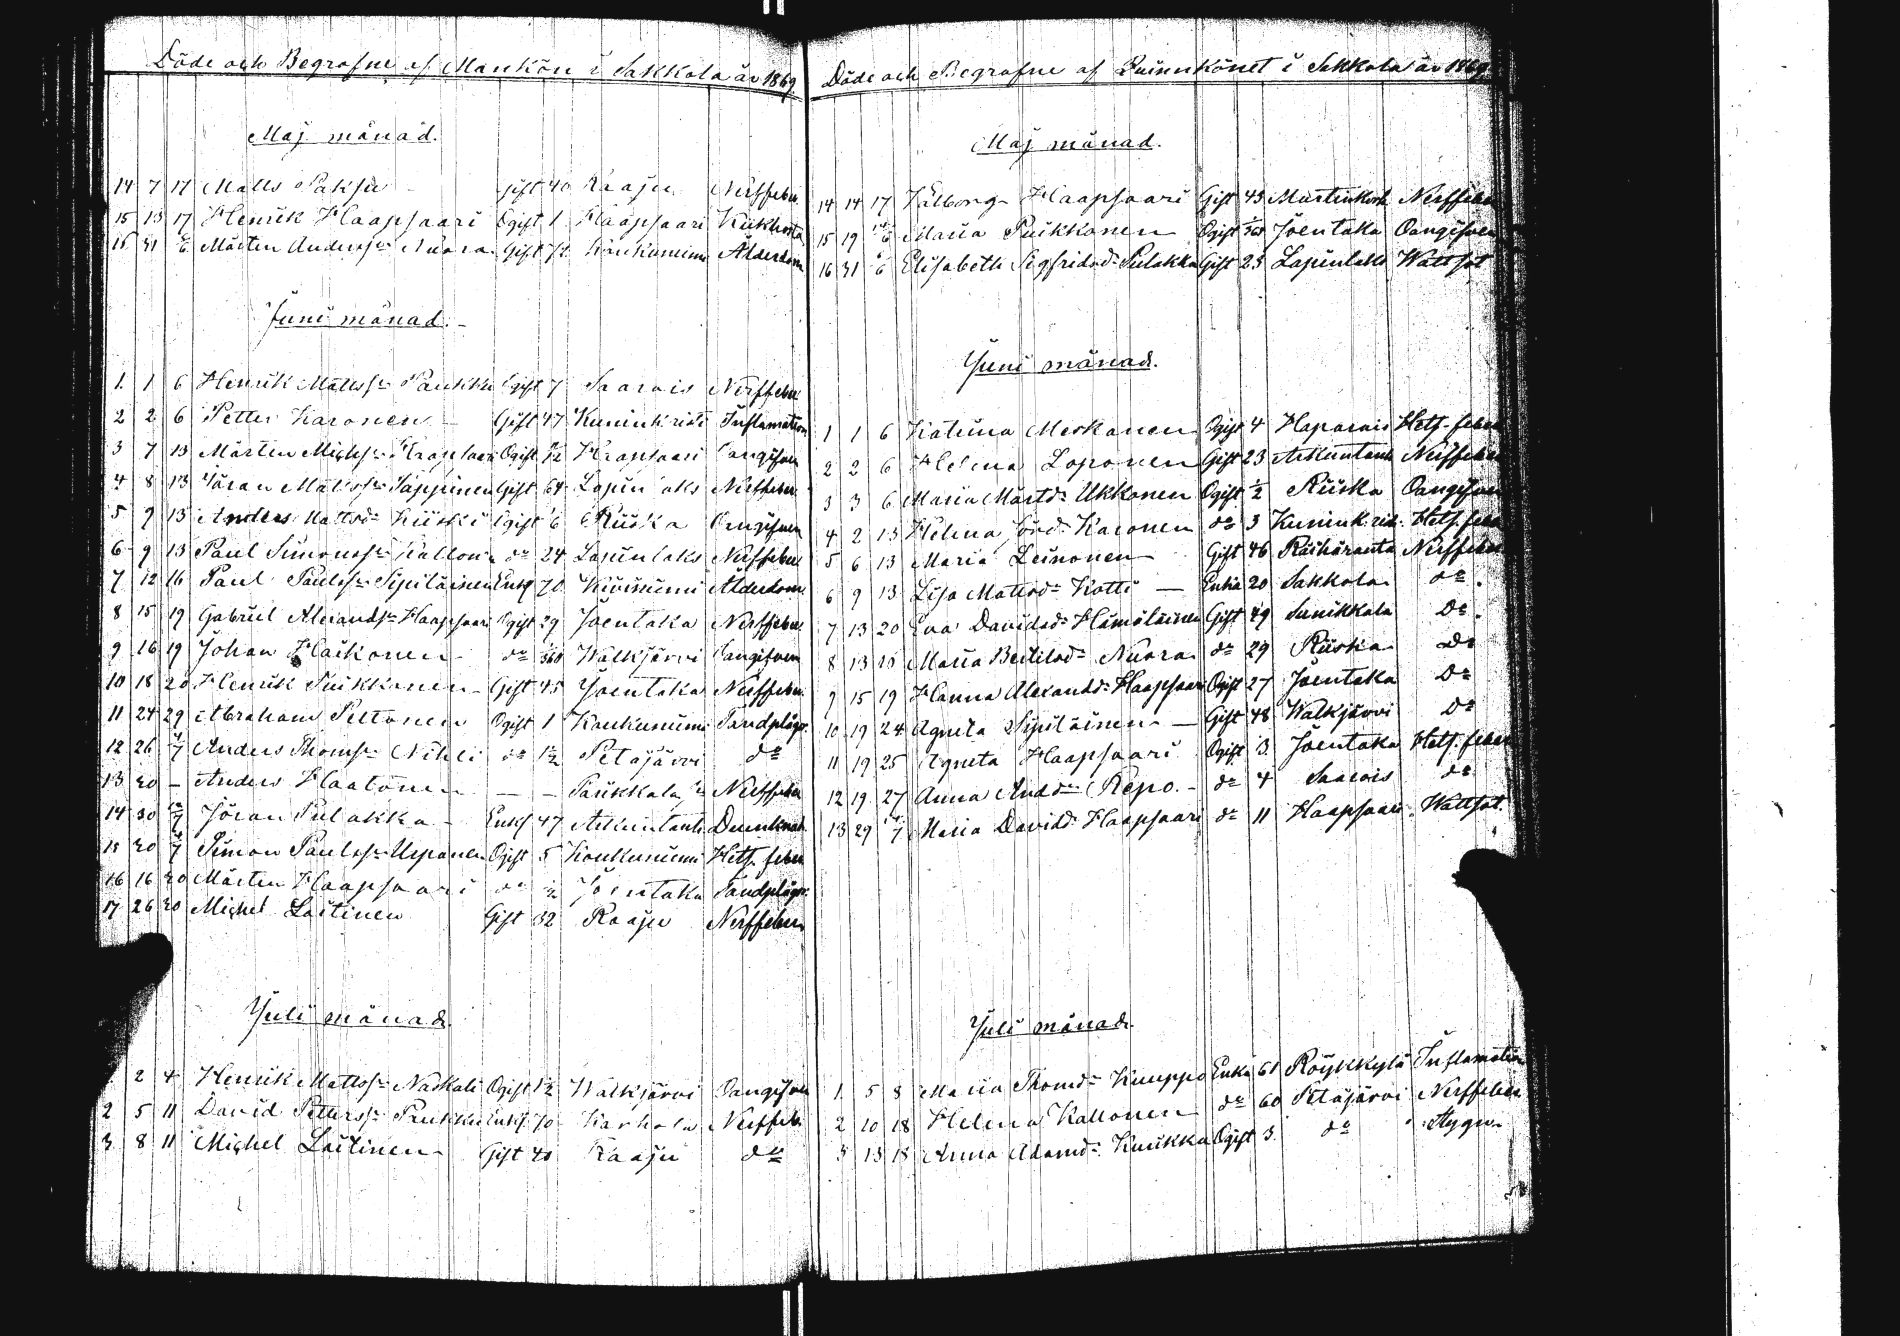 Döde och Begrafne af Mankön i Sakkola år 1869.
Maj månad.
14 7 17 Matts Paksu Gift 40 Raaju Nerffeber
15 13 17 Henrik Haapsaari Ogift 1 Haapsaari Kikhosta
16 31 6/6 Mårten Anderss. Nuora Gift 72 Koukuniemi Ålderdom
Juni månad.
1 1 6 Henrik Mattss. Paukku Ogift 7 Saarois Nerffeber
2 2 6 Petter Karonen Gift 47 Kuninkristi Inflamation
3 7 13 Mårten Michs. Haapsaari Ogift Haapsaari Oangifven
4 8 13 Jöran Mattss. Säppinen Gift 64 Lapinlaks Nerffeber
5 9 13 Anders Mattsd. Kiiski Ogift 6 Riiska Oangifven
6 9 13 Paul Simonss. Kallonen do 24 Lapinlaks Nerffeber
7 12 16 Paul Paulss. Sipiläinen Enkl 70 Kiviniemi Ålderdom
8 15 19 Gabriel Alexands. Haapsaari Ogift 29 Joentaka Nerffeber
9 16 19 Johan Haikonen do /365 Walkjärvi Oangifven
10 18 20 Henrik Puikkonen Gift 45 Joentaka Nerffeber
11 24 29 Abraham Peltonen Ogift 1 Koukuniemi Tandplågor
12 26 /7 Anders Thoms. Nihti do 1 1/2 Petäjärvi do
13 20 – Anders Haatonen – – Paukkala Nerffeber
14 30 /7 Jöran Pulakka Enkl 47 Arkuntanti Drunknad
15 20 /7 Simon Paulss. Uspanen Ogift 5 Koukuniemi Hets. feber
16 16 20 Mårten Haapsaari do 1/2 Joentaka Tandplågor
17 26 20 Michel Laitinen Gift 32 Raaju Nerffeber
Juli månad.
2 4 Henrik Mattss. Naskali Ogift 1 1/2 Walkjärvi Oangifven
2 5 11 David Peterss. Paukku Enkl 70 Karhola Nerffeb.
3 8 11 Michel Laitinen Gift 40 Raaju do
Döde och Begrafne af Quinnkönet i Sakkola år 1869.
Maj månad.
14 14 17 Walborg Haapsaari Gift 43 Martinkorb Nerffeber
15 19 /6 Maria Puikkonen Ogift /365 Joentaka Oangifven
16 31 6/6 Elisabeth Sigfridsd. Pulakka Gift 25 Lapinlaks Wattsot
Juni månad.
1 1 6 Katrina Meskanen Ogift 4 Haparais Hets. feber
2 2 6 Helena Loponen Gift 23 Arkuntanti Nerffeber
3 3 6 Maria Mårtd. Ukkonen Ogift 1/2 Riiska Oangifven
4 2 13 Helena Jörd. Karonen do 3 Kuninkrist. Hets. feber
5 6 13 Maria Leinonen Gift 46 Räihäranta Nerffeber
6 9 13 Lisa Mattsd. Kotti – Enka 20 Sakkola do
7 13 20 Eva Davidsd. Hämäläinen Gift 49 Sunikkala Do
8 13 15 Maria Bertilsd. Nuora do 29 Riiska Do
9 15 19 Hanna Alexandd. Haapsaari Ogift 27 Joentaka Do
10 19 24 Agneta Sipiläinen – Gift 48 Walkjärvi Do
11 19 25 Agneta Haapsaari Ogift 3 Joentaka Hets. feber
12 19 27 Anna Andd. Repo – do 4 Saarois do
13 29 /7 Maria Davidd. Haapsaari do 11 Haapsaari Wattsot.
Juli månad.
1 5 8 Maria Thomd. Kuuppo Enka 61 Röykkylä Inflamation
2 10 18 Helena Kallonen do 60 Petäjärvi Nerffeber
3 13 18 Anna Adamd. Kuikka Ogift 3 do Stygn